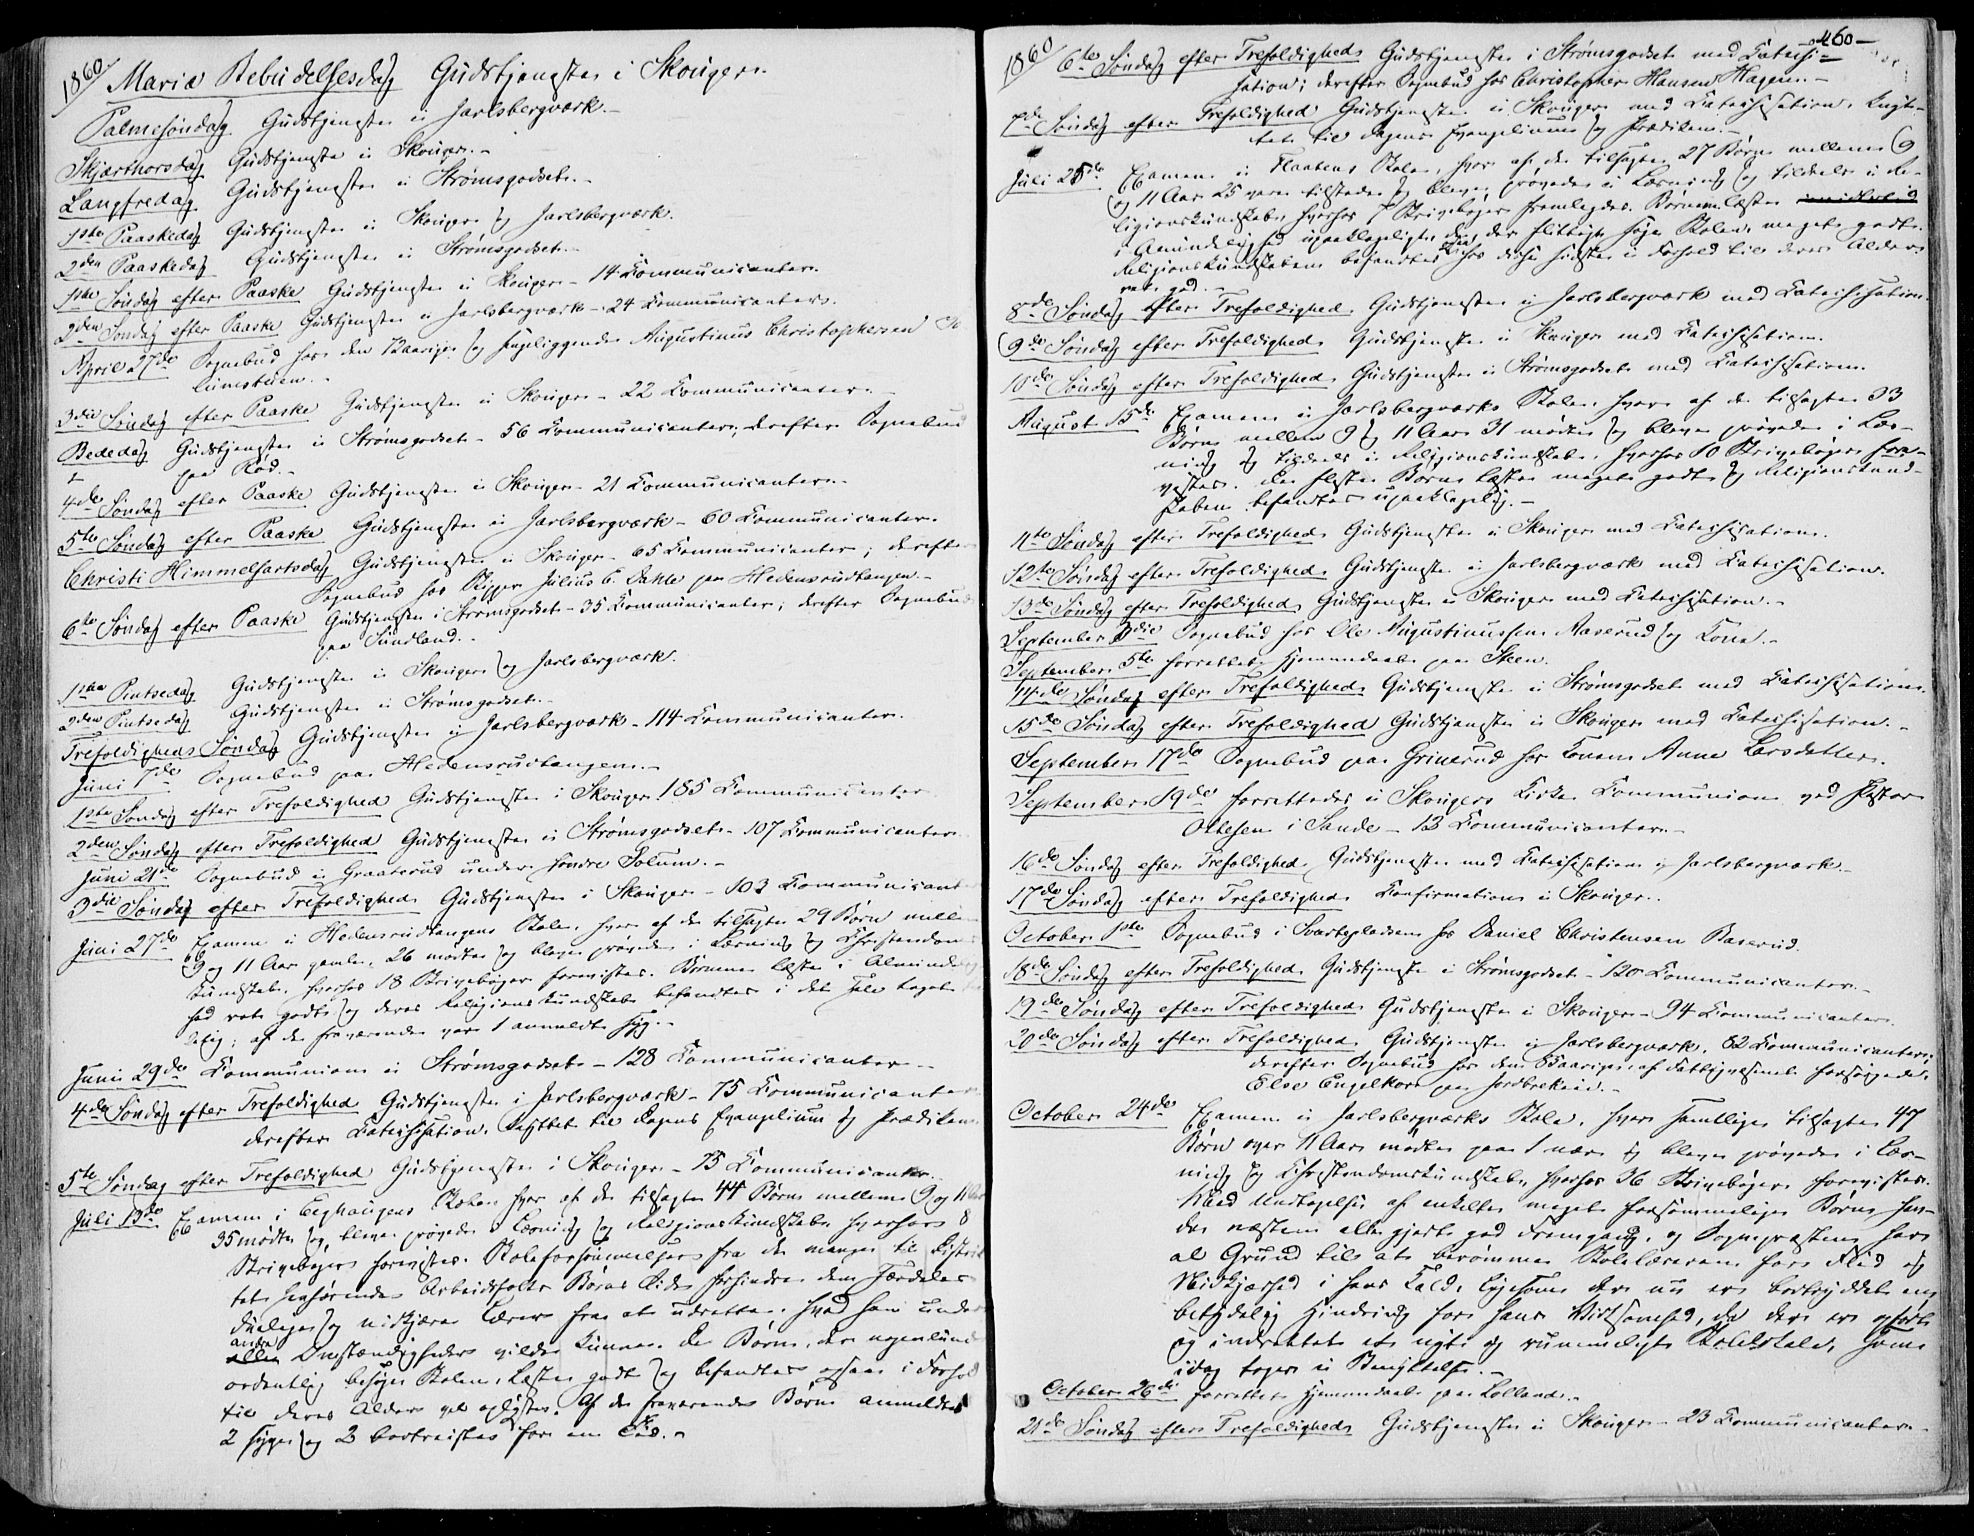 1860.
Mariæ Bebudelsesdag Gudstjeneste i Skouger.
Palmesøndag. Gudstjeneste i Jarlsbergværk.-
Skjærthorsdag Gudstjeneste i Skouger.-
Langfredag. Gudstjeneste i Strømsgodset.-
1ste Paaskedag Gudstjeneste i Skouger og Jarlsbergværk.
2den Paaskedag Gudstjeneste i Strømsgodset.-
1ste Søndag efter Paaske Gudstjeneste i Skouger - 14 Communicanter.
2den Søndag efter Paaske Gudstjeneste i Jarlsbergværk - 24 Communicanter.
April 27de Sognebud hos den aarige og sengeliggende Augustinus Christophersen
3die Søndag efter Paaske Gudstjeneste i Skouger - 22 Communicanter.
Bededag Gudstjeneste i Strømsgodset - 56 Communicanter; derefter Sognebud
paa Rød.-
4de Søndag efter Paaske Gudstjeneste i Skouger - 21 Communicanter.-
5te Søndag efter Paaske Gudstjeneste i Jarlsbergværk - 60 Communicanter.
Christi Himmelfartsdag Gudstjeneste i Skouger - 65 Communicanter; derefter
Sognebud hos Skipper Julius C. Dahle paa Hedensrudtangen.-
6te Søndag efter Paaske Gudstjeneste i Strømsgodset - 35 Communicanter; derefter Sognebud
paa Sundland.-
1ste Pintsedag Gudstjeneste i Skouger og Jarlsbergværk.
2den Pintsedag Gudstjeneste i Strømsgodset.-
Trefoldigheds Søndag Gudstjeneste i Jarlsbergværk - 114 Communicanter.
Juni 7de Sognebud paa Hedensrudtangen.-
1ste Søndag efter Trefoldighed Gudstjeneste i Skouger 185 Communicanter
2den Søndag efter Trefoldighed Gudstjeneste i Strømsgodset - 107 Communicanter
Juni 21de Sognebud i Graaterud under søndre Solum.-
3die Søndag efter Trefoldighed Gudstjeneste i Skouger - 103 Communicant
Juni 27de Examen i Hedensrudtangens Skole, hvor af de tilsagte 29 Børn mellem
9 og 11 Aar gamle, 26 mødte og bleve prøvede i Læsning og Christendoms
kundskab, hvorhos 18 Skrivebøger forevistes. Børnene læste i Almindelig
hed ret godt og deres Religionskundskab befandtes i det Hele taget
; af de fraværende var 1 anmeldt syg.-
Juni 29de Communion i Strømsgodset - 128 Communicanter -
4de Søndag efter Trefoldighed Gudstjeneste i Jarlsbergværk - 75 Communicanter
derefter Catechisation, knyttet til Dagens Evangelium og Prædiken
5te Søndag efter Trefoldighed Gudstjeneste i Skouger - 75 Communicanter.
Juli 13de Examen i Eeghaugens Skole, hvor af de tilsagte 44 Børn mellem 9 og 11 Aar
35 mødte og bleve prøvede i Læsning og Religionskundskab, hvorhos 8
Skrivebøger forevistes. Skoleforsømmelser fra de mange til Distrik
tet henhørende Arbeidsfolks Børns Side forhindre den særdeles
duelige og nidkjære Lærer fra at udrette, hvad han under
andre Omstændigheder vilde kunne. De Børn, der nogenlunde
ordentlig besøge Skolen, læste godt og befandtes ogsaa i Forhold
til deres Alder vel oplyste. Af de fraværende Børn anmeldtes
2 syge og 2 bortreiste for en Tid.-
1860
460-
6te Søndag efter Trefoldighed Gudstjeneste i Strømsgodset med Catechi-
sation; derefter Sognebud hos Christopher Hansen Hagen.-
7de Søndag efter Trefoldighed Gudstjeneste i Skouger med Catechisation, knyt-
tet til Dagens Evangelium og Prædiken.-
Juli 25de Examen i Flaatens Skole, hvor af de tilsagte 27 Børn mellem 9
og 11 Aar 25 vare tilstede og bleve prøvede i Læsning og tildeels i Re-
ligionskundskab, hvorhos 7 Skrivebøger fremlagdes. Børnene læste
i Almindelighed upaaklageligt, de, der flittigt søge Skolen, meget godt.
Religionskundskaben befandtes hos disse sidste i Forhold til deres Alder
ret god.-
8de Søndag efter Trefoldighed Gudstjeneste i Jarlsbergværk med Catechisation.
9de Søndag efter Trefoldighed Gudstjeneste i Skouger med Catechisation.
10de Søndag efter Trefoldighed Gudstjeneste i Strømsgodset med Catechisation.
August 15de Examen i Jarlsbergværks Skole, hvor af de tilsagte 33
Børn mellem 9 og 11 Aar 31 mødte og bleve prøvede i Læs-
ning og tildeels i Religionskundskab, hvorhos 10 Skrivebøger fore-
vistes. De fleste Børn læste meget godt og Religionskund-
skaben befandtes upaaklagelig.-
11te Søndag efter Trefoldighed Gudstjeneste i Skouger med Catechisation.
12te Søndag efter Trefoldighed Gudstjeneste i Jarlsbergværk med Catechisation.
13de Søndag efter Trefoldighed Gudstjeneste i Skouger med Catechisation.-
September 3die Sognebud hos Ole Augustinussen Aaserud og Kone.-
September 5te forrettet Hjemmedaab paa Steen.
14de Søndag efter Trefoldighed Gudstjeneste i Strømsgodset med Catechisation.
15de Søndag efter Trefoldighed Gudstjeneste i Skouger med Catechisation.-
September 17de Sognebud paa Grinerud hos Konen Anne Larsdatter.
September 19de forrettedes i Skougers Kirke Communion ved Pastor
Ottesen i Sande - 13 Communicanter.-
16de Søndag efter Trefoldighed Gudstjeneste med Catechisation i Jarlsbergværk.-
17de Søndag efter Trefoldighed Confirmation i Skouger.-
October 1ste Sognebud i Svartepladsen hos Daniel Christensen Baserud.
18de Søndag efter Trefoldighed Gudstjeneste i Strømsgodset - 120 Communicanter.-
19de Søndag efter Trefoldighed Gudstjeneste i Skouger - 94 Communicanter.
20de Søndag efter Trefoldighed Gudstjeneste i Jarlsbergværk, 82 Communicanter;
derefter Sognebud hos den aarige, af Fattigvæsenet forsørgede
Else Engelkor paa Jordbrekeie.-
October 24de Examen i Jarlsbergværks Skole, hvor samtlige tilsagte 47
Børn over 11 Aar mødte paa 1 nær og bleve prøvede i Læs-
ning og Christendomskundskab, hvorhos 36 Skrivebøger forevistes.
Med Undtagelse af enkelte meget forsømmelige Børn, hav-
de næsten alle gjort god Fremgang, og Sognepræsten har
al Grund til at berømme Skolelæreren for Flid og
Nidkjærhed i hans Kald, ligesom der nu er bortryddet en
betydelig Hindring for hans Virksomhed, da der er opført
og indrettet et nyt og rummeligt Skolelokale, som
idag toges i Benyttelse.-
October 26de forrettet Hjemmedaab paa Lolland.-
21de Søndag efter Trefoldighed Gudstjeneste i Skouger - 23 Communicanter.-